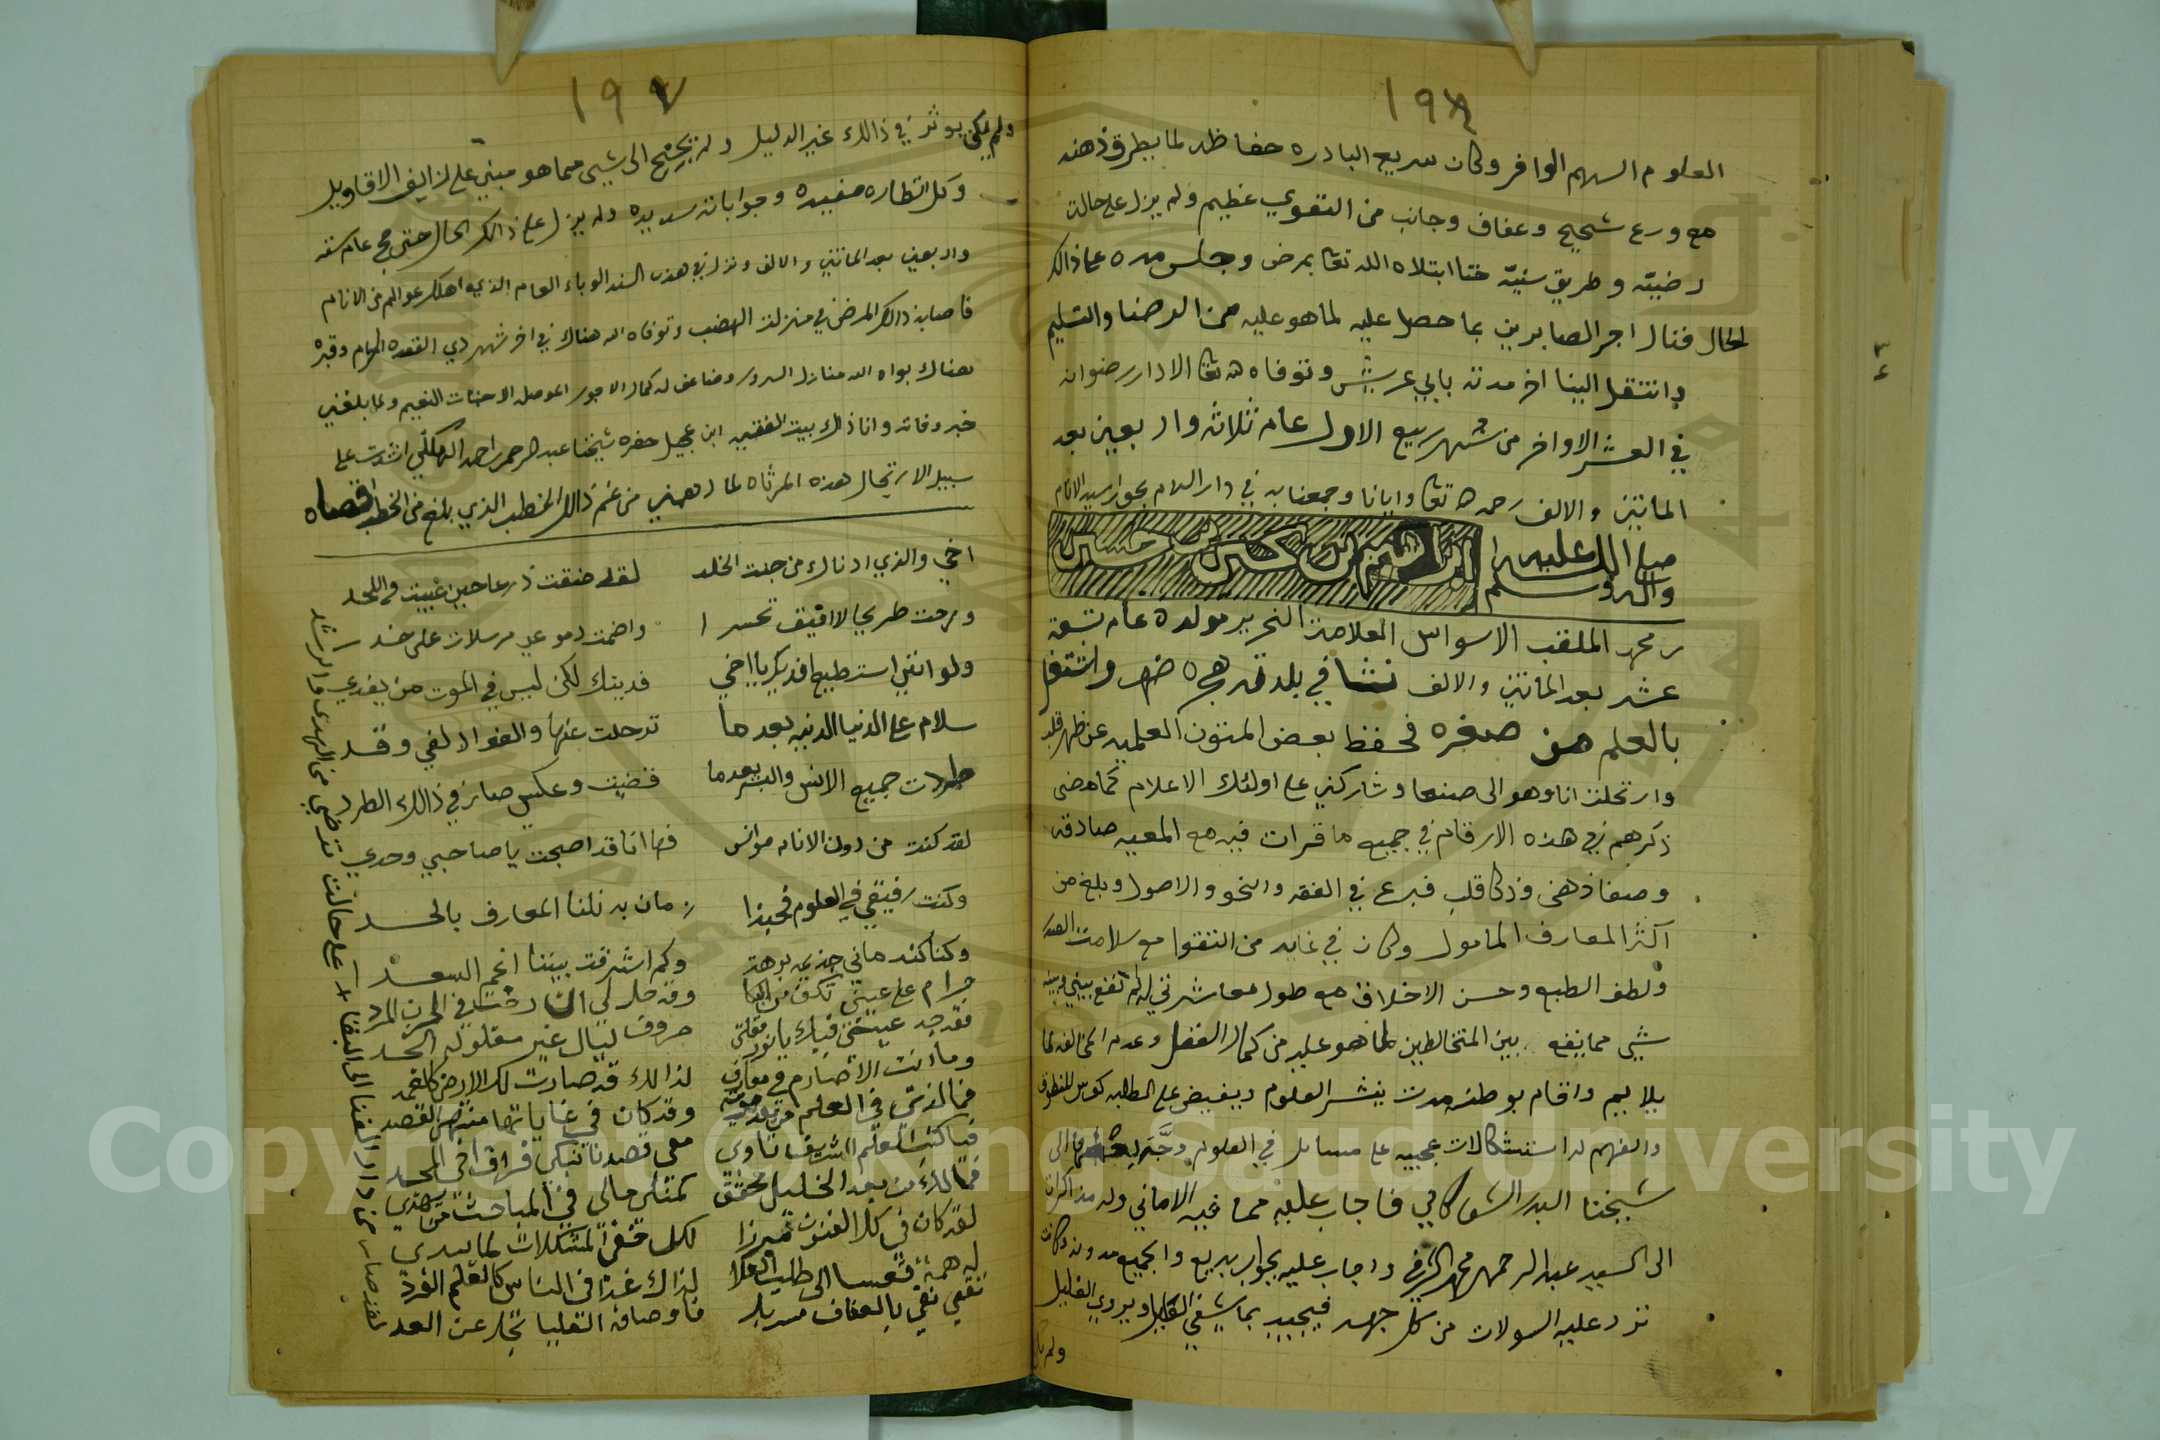 ١٩٨
العلوم السهم الوافر وكان سريع البادره حفاظه لما يطرق ذهنه
مع ورع شحيح وعفاف وجانب من التقوي عظيم ولم يزل على حالة
رضيّه وطريق سنيّه حتا ابتلاه الله تعا بمرض وجلس مده على ذالك
الحال فنال اجر الصابرين بما حصل عليه لما هو عليه من الرضا والتسليم
وانتقل الينا اخر مدته بابي عريش وتوفاه الله تعا الا دار رضوانه
في العشر الاواخر من شهر ربيع الاول عام ثلاثه واربعين بعد
المأتين والالف رحمه الله تعا وايانا وجمعنا به في دار السلام بجوار سيد الانام
صلى الله عليه واله وسلم
ابراهيم بن حسن بن حسين
بن محمد الملقب الاسواس العلامة النحرير مولده عام تسعة
عشر بعد المأتين والالف نشا في بلدته هجره ضمد واشتغل
بالعلم من صغره فحفظ بعض المتون العلميه عن ظهر قلبه
وارتحلت انا وهو الى صنعا وشاركني على اولئك الاعلام كما مضى
ذكرهم في هذه الارقام في جميع ما قرات فيه مع المعيه صادقه
وصفا ذهن وذكا قلب فبرع في الفقه والنحو والاصول وبلغ من
اكثر المعارف المامول وكان في غايه من التقوا مع سلامة الصدر
ولطف الطبع وحسن الاخلاق مع طول معاشرتي له لم تقع بيني وبينه
شي مما يقع بين المتخالطين لما هو عليه من كمال الفضل وعدم المخالفه لما
يلايم واقام بوطنه مدت ينشر العلوم ويفيض على الطلبه كوس المنطوق
والفهم له استشكالات عجيبه على مسايل في العلوم وجَّه الى
شيخنا البدر الشوكاني فاجاب عليه مما فيه الاماني وله مذاكرات
الى السيد عبد الرحمن محمد الشرفي واجاب عليه بجواب بديع والجميع مدونه وكانت
ترد عليه السولات من كل جهه فيجيب بما يشفي العليل ويروي الغليل
ولم
١٩٧
ولم يكن يوثر في ذالك غير الدليل ولا يجنح الى شيى مما هو مبني على زايف الاقاويل
وكل انظاره مفيده وجواباته سديده ولم يزل على ذالك الحال حتى حج عام سته
واربعين بعد المائتين والالف ونزل في هذه السنه الوباء العام الذي اهلك عوالم من الانام
فاصابه ذالك المرض في منزلة الهضب وتوفاه الله هناك في اخر شهر ذي القعده الحرام وقبره
هناك بواه الله منازل السرور وضاعف له كمال الاجور الموصله الا جنات النعيم ولما بلغني
خبر وفاته وانا ذاك بيت الفقيه ابن عجيل حضره شيخنا عبد الرحمن احمد البهكلي انشدت على
سبيل الارتجال هذه المرثاه لما دهمني من غم ذالك الخطب الذي بلغ من الخطر اقصاه
اخي والذي ادناك من جنت الخلد لقد ضقت ذرعا حين غيبت في اللحد
ورحت طريحا لا افيق تحسرا واضحت دموعي مرسلات على خد
ولو انني استطيع افديك يا اخي فديتك لكن ليس في الموت من يفدي
سلام على الدنيا الدنيه بعد ما ترحلت عنها والفواد لفي وقد
طردت جميع الانس والبشر بعدما قضيت وعكس صار في ذالك الطرد
لقد كنت من دون الانام موانسي فها انا قد اصبحت يا صاحبي وحدي
وكنت رفيقي في العلوم فحبذا زمان به نلنا المعارف بالجد
وكنا كندماني جذيمه برهة وكم اشرقت بيننا انجم السعد
حرام على عيني تكف من البكا وقد حل لي ان الحزن
فقد جد عيشي فيك يا نور مقلتي صروف ليال غير مفلوله الحد
وما انت الا صارم في معارف لذالك قد صارت لك الارض كالغمد
فما لذتي في العلم من بعد موته وقد كان في غاياتها منتهى القصد
فيا كتب العلم الشريف تاوي معي قصدنا نبكي فراق اخي المجد
فمالك من بعد الخليل محقق كمثلي مالي في المباحث من يهدي
لقد كان في كل الفنون مبرزا لكل خفي المشكلات لما يبدي
له همة قعسا الى طلب العلا لذاك غدا في الناس كالعلم الفرد
تقي نقي بالعفاف مسربل فاوصافه العليا تجل عن العد
لقد صار من دار الفنا الى البقا على حالت ترضي من الهدى والرشد